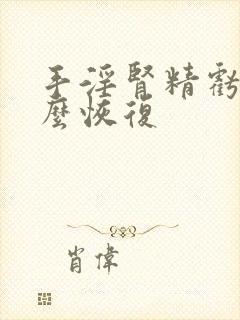 手淫腎精虧
麼恢復
肖偉